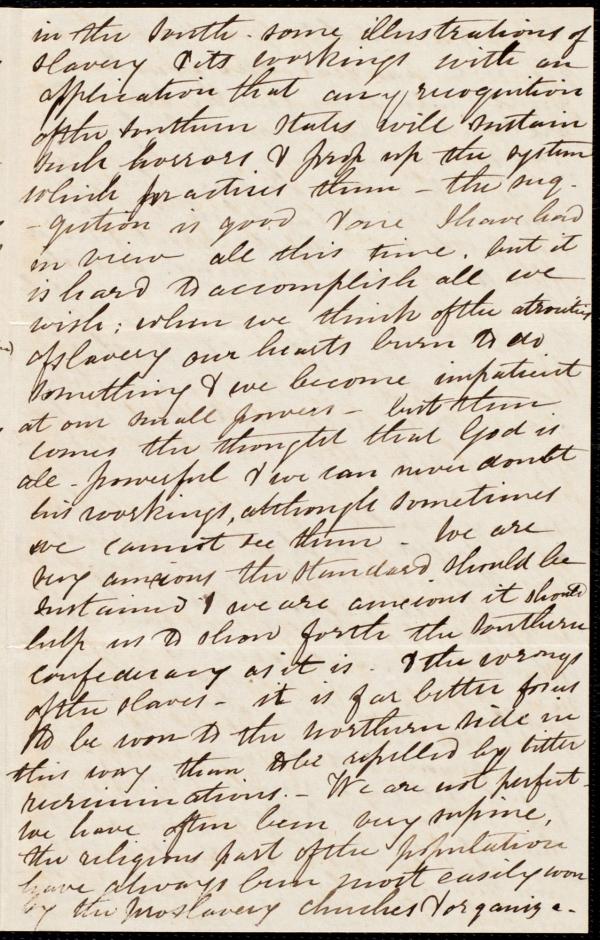 in the South - some illustrations of
slavery & its workings with an
application that any recognition
of the Southern States will sustain
such horrors & prop up the system
which practises them - the sug-
-gestion is good & one I have had
in view all this time. but it
is hard to accomplish all we
wish; when we think of the atrocities
of slavery our hearts burn to do
something & we become impatient
at our small powers - but then
comes the thought that God is
all-powerful & we can never doubt
his workings, although sometimes
we cannot see them - We are
very anxious the Standard should be
sustained & we are anxious it should
help us to show forth the Southern
confederacy as it is. & the wrongs
of the slaves - it is far better for us
to be won to the northern side in
this way than to be repelled by bitter
recriminations. - We are not perfect -
we have often been very supine,
the religious part of the population
have always been most easily won
by the proslavery churches & organiza-